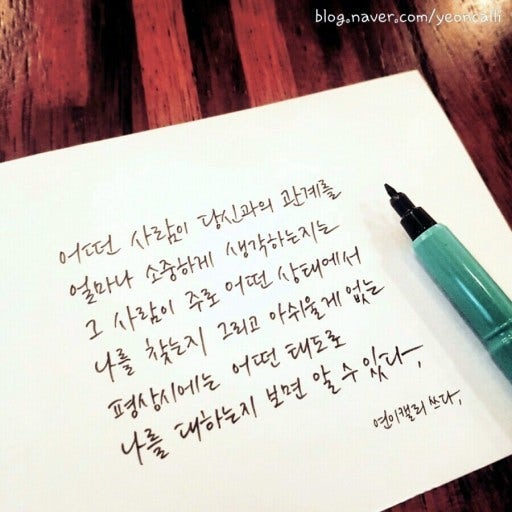 blog.naver.com/yeoncalli
어떤 사람이 당신과의 관계를
얼마나 소중하게 생각하는지는
그 사람이 주로 어떤 상태에서
나를 찾는지 그리고 아쉬울게 없는
평상시에는 어떤 태도로
나를 대하는지 보면 알 수 있다,
연이캘리 쓰다,